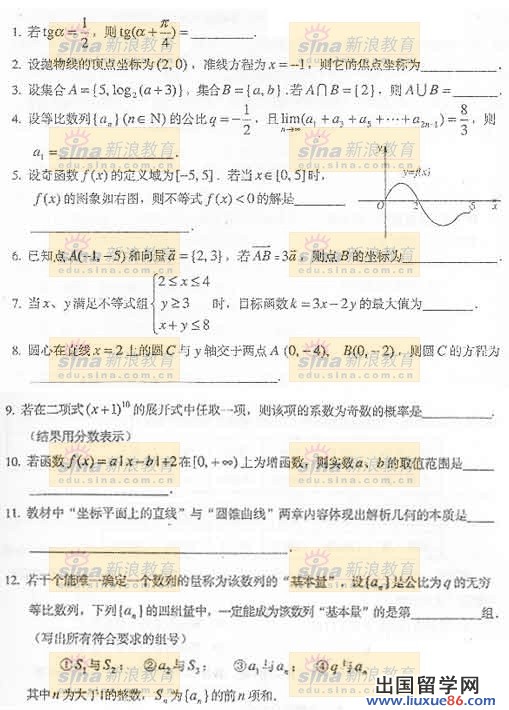 1. 若tgα=1/2，则tg(α+π/4)=________.
2. 设抛物线的顶点坐标为(2,0)，准线方程为x=-1，则它的焦点坐标为________.
3. 设集合A={5,log₂(a+3)}，集合B={a,b}.若A∩B={2}，则A∪B=________.
4. 设等比数列{aₙ}(n∈N)的公比q=-1/2，且lim(n→∞)(a₁+a₃+a₅+⋯+a₂ₙ₋₁)=8/3，则
a₁=________.
5. 设奇函数f(x)的定义域为[-5,5]. 若当x∈[0,5]时，
f(x)的图象如右图，则不等式f(x)<0的解是________
________.
y
y=f(x)
O 2 5 x
6. 已知点A(-1,-5)和向量a⃗={2,3}，若AB⃗=3a⃗，则点B的坐标为________.
7. 当x、y满足不等式组{2≤x≤4
y≥3
x+y≤8 时，目标函数k=3x-2y的最大值为________.
8. 圆心在直线x=2上的圆C与y轴交于两点A(0,-4)，B(0,-2)，则圆C的方程为
________.
9. 若在二项式(x+1)¹⁰的展开式中任取一项，则该项的系数为奇数的概率是________.
（结果用分数表示）
10. 若函数f(x)=a|x-b|+2在[0,+∞)上为增函数，则实数a、b的取值范围是____
________.
11. 教材中“坐标平面上的直线”与“圆锥曲线”两章内容体现出解析几何的本质是____
________.
12. 若干个能唯一确定一个数列的量称为该数列的“基本量”，设{aₙ}是公比为q的无穷
等比数列，下列{aₙ}的四组量中，一定能成为该数列“基本量”的是第________组.
（写出所有符合要求的组号）
①S₁与S₂； ②a₂与S₃； ③a₁与aₙ； ④q与aₙ
其中n为大于1的整数，Sₙ为{aₙ}的前n项和.
sina 新浪教育
edu.sina.com.cn
出国留学网
www.liuxue86.com